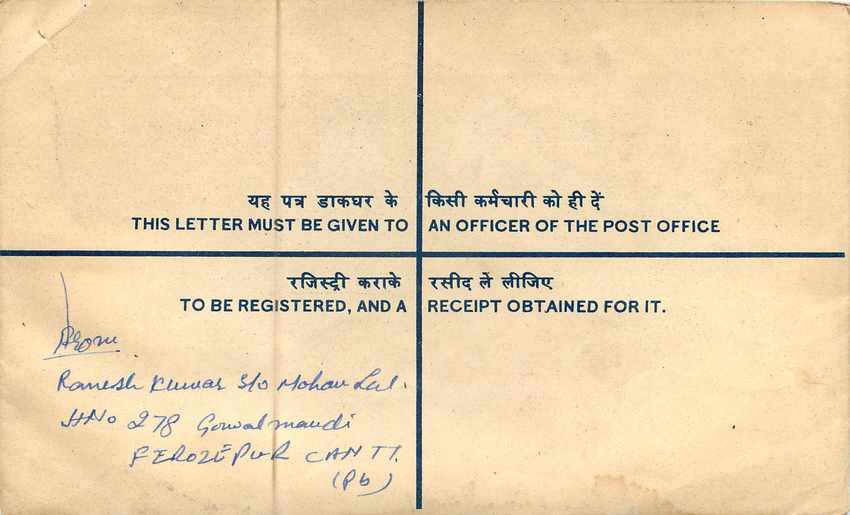 यह पत्र डाकघर के किसी कर्मचारी को ही दें
THIS LETTER MUST BE GIVEN TO AN OFFICER OF THE POST OFFICE
रजिस्ट्री कराके रसीद लें लीजिए
TO BE REGISTERED, AND A RECEIPT OBTAINED FOR IT.
From
Ramesh Kumar S/o Mohan Lal.
HNo 278 Gowalmandi
FEROZEPUR CANTT.
(Pb)